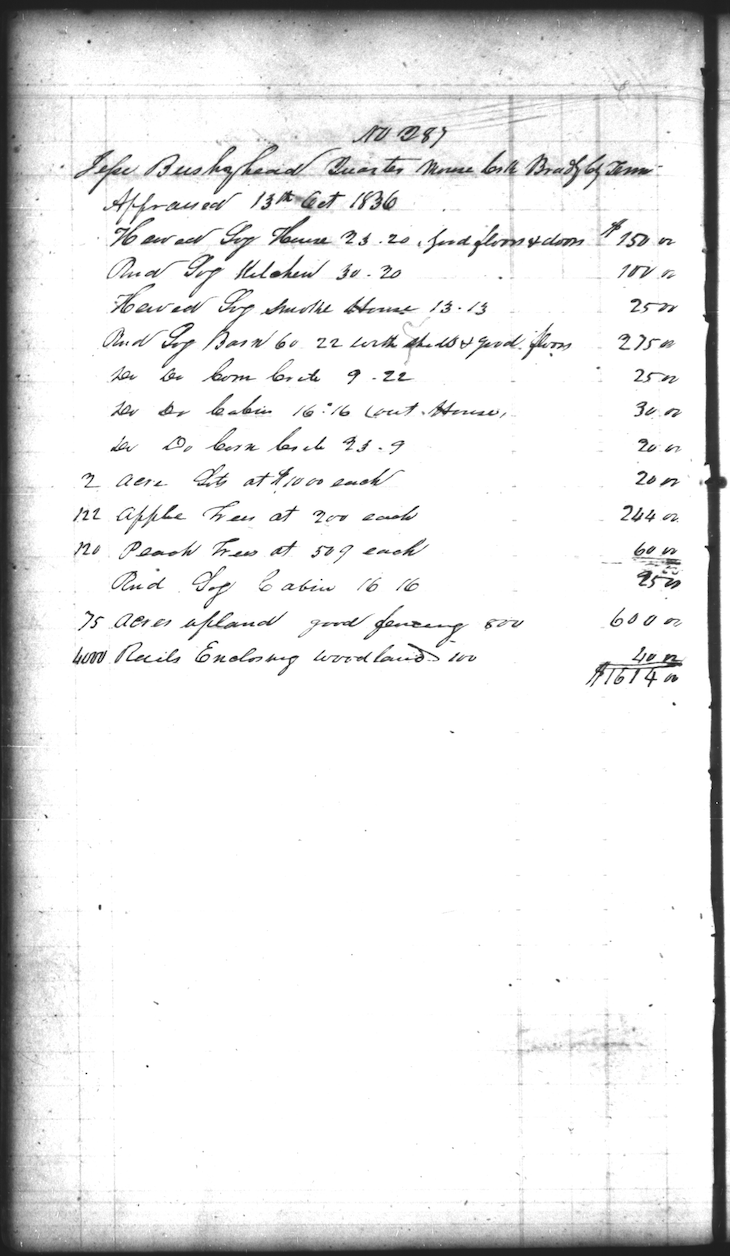 No 287
Jesse Bushyhead Quarter Mouse Crk Brady Cty Tenn
Appraised 13th Oct 1836
Hewed Log House 23-20, good floors & doors $150 00
Rnd Log Kitchen 30-20 100 00
Hewed Log Smoke House 13-13 25 00
Rnd Log Barn 60 22 with sheds & good floors 275 00
Do Do Corn Crib 9-22 25 00
Do Do Cabin 16-16 (out House) 30 00
Do Do Corn Crib 23-9 20 00
2 Acre Lots at $10 00 each 20 00
122 Apple Trees at 200 each 244 00
120 Peach Trees at 50¢ each 60 00
Rnd Log Cabin 16 16 25 00
75 Acres upland good fencing 800 600 00
4000 Rails Enclosing woodland 100 40 00
$1614 00